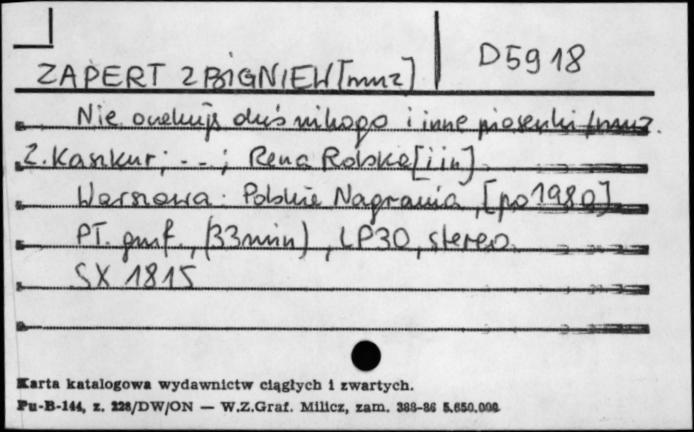 D5918
ZAPERT ZBIGNIEW [muz]
Nie oczekuję dziś nikogo i inne piosenki / muz.
Z. Kaszkur; ...; Rena Rolska [i in]
Warszawa: Polskie Nagrania, [po 1980]
PT. gmf., (33 min), LP30, stereo.
SX 1815
Karta katalogowa wydawnictw ciągłych i zwartych.
Pu-B-144, z. 228/DW/ON — W.Z.Graf. Milicz, zam. 388-86 5.650.000